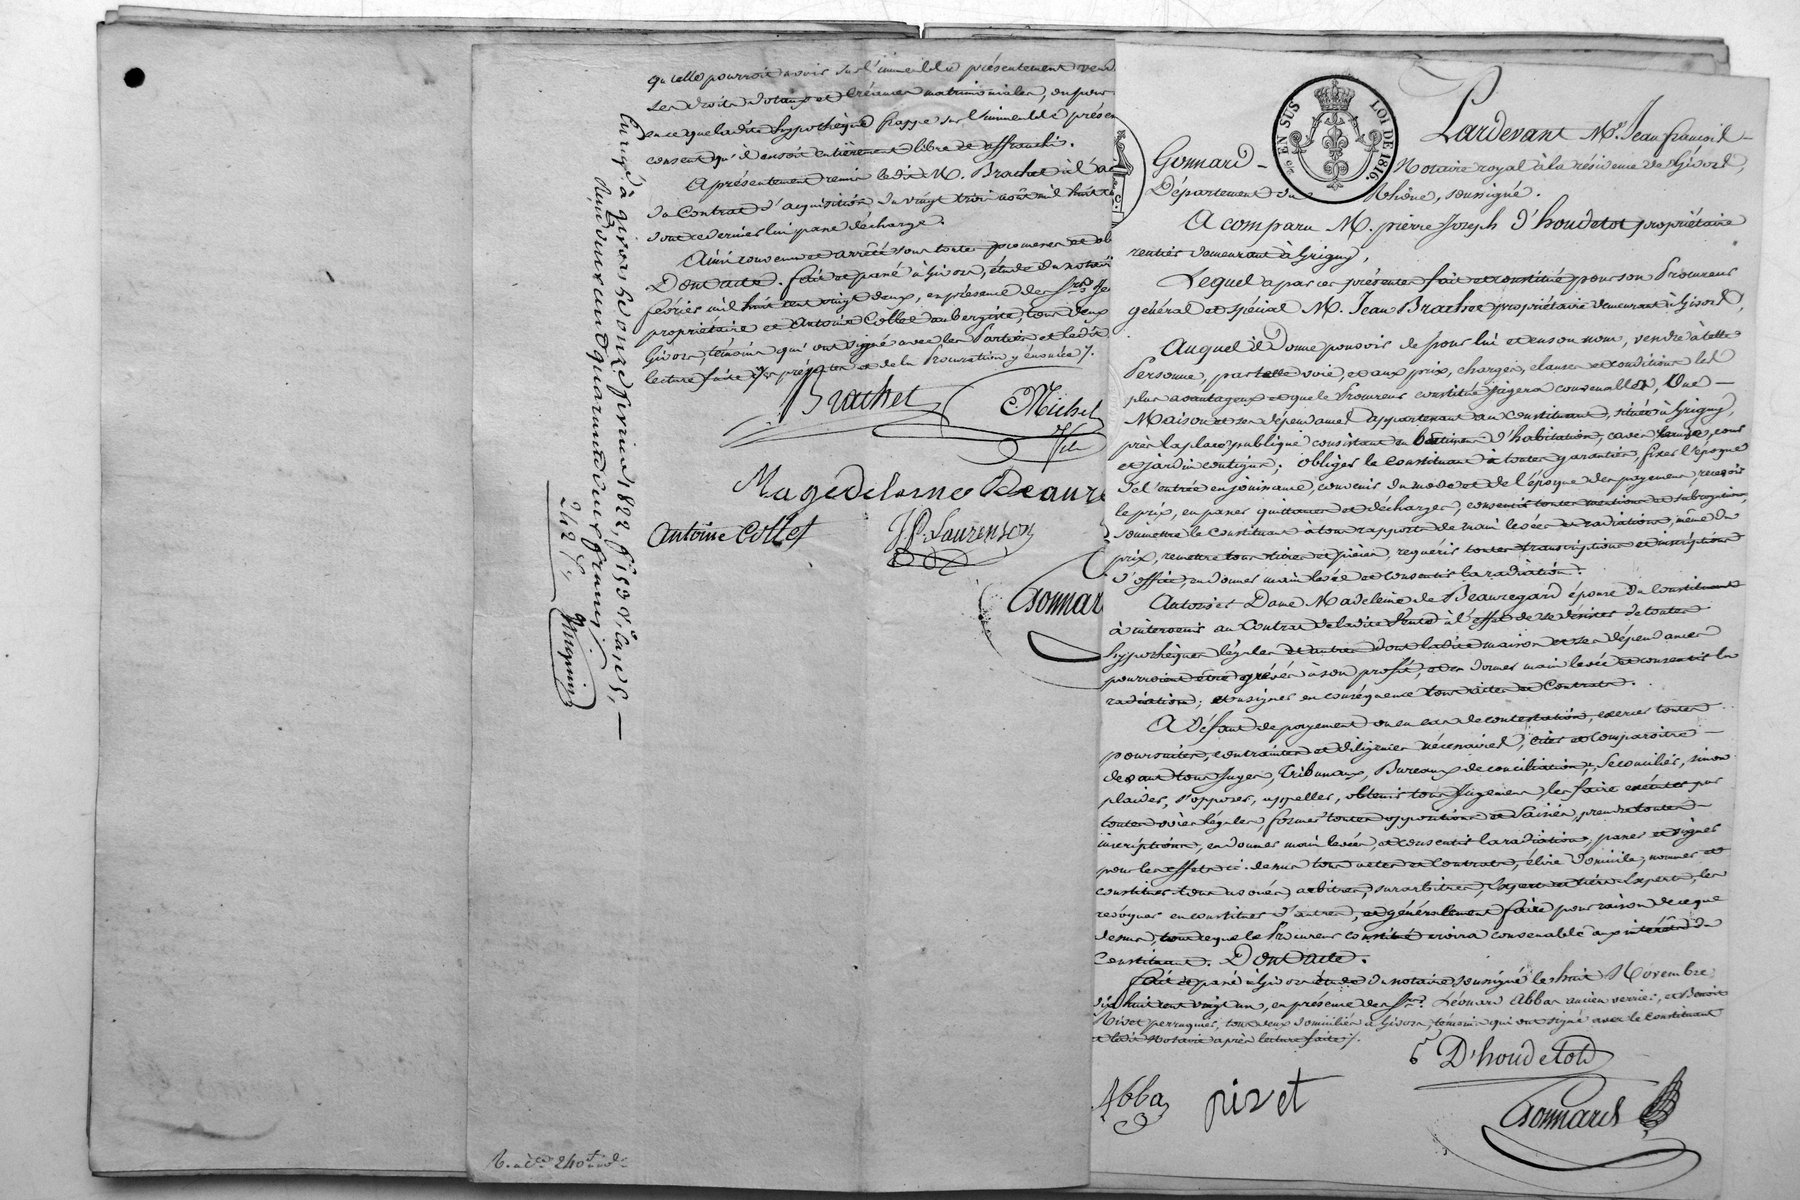 qu'elle pourroit avoir sur l'immeuble présentement vend
ses droits dotaux et créances matrimoniales, en
en ce que ladite hypothèque frappe sur l'immeuble présen
consent qu'il en soit entièrement libre et affranchi.
A présentement remis ledit M. Brachet à l'
du Contrat d'acquisition du vingt trois août mil huit
dont ce dernier lui passe décharge.
Ainsi convenu et arrêté sous toutes promesses et ob
Dont acte. fait et passé à Givors, étude du notaire
février mil huit cent vingt deux, en présence des Srs
propriétaire et Antoine Collet aubergiste, tous deux
Givors, témoins qui ont signé avec les Parties et ledit
lecture faite des présentes et de la Procuration y énoncée ./.
Brachet
Michel
fils
Magedelaine Beaure
Antoine Collet
JP. Laurenson
Gonnar
Enregé à Givors le onze février 1822, fo 153 Vo Cases,
Reçu deux cent quarante deux francs
242 f.
R. 240
EN SUS
LOI DE 1816
Pardevant Me Jean françois
Gonnard
Notaire royal à la résidence de Givors,
Département du Rhône, soussigné.
A comparu M. pierre Joseph d'houdetot propriétaire
rentier demeurant à Grigny,
Lequel a par ces présentes fait et constitué pour son Procureur
général et spécial M. Jean Brachet propriétaire demeurant à Givors,
Auquel il Donne pouvoir de pour lui et en son nom, vendre à telle
Personne, par telle voie, et aux prix, charges, clauses et conditions les
plus avantageux et que le Procureur constitué jugera convenables, Une
Maison et ses dépendances appartenant au Constituant, située à Grigny,
près la place publique consistant en batiment d'habitation, caves, cour
et jardin contigus; obliger le constituant à toutes garanties, fixer l'époque
de l'entrée en jouissance, convenir du mode et de l'époque des payemens, recevoir
le prix, en passer quittances et décharges, consentir toutes mentions et subrogations,
soumettre le constituant à tous rapports de main levées et radiations, même du
prix, remettre tous titres et pièces, requérir toutes transcriptions et inscriptions
d'office, en donner main levée et consentir la radiation.
Autoriser Dame Madeleine de Beauregard épouse du Constituant
à intervenir au Contrat de ladite Vente à l'effet de se désister de toutes
hypothèques légales et autres dont ladite maison et ses dépendances
pourroient être grévés à son profit, et en donner main levée et consentir la
radiation; et signer en conséquence tous actes et Contrats.
A défaut de payement ou en cas de contestation, exercer toutes
poursuites, contraintes et diligences nécessaires, citer et comparoitre
devant tous Juges, Tribunaux, Bureaux de conciliation, se concilier, sinon
plaider, s'opposer, appeller, obtenir tous Jugemens, les faire exécuter par
toutes voies légales, former toutes oppositions et saisies, prendre toutes
inscriptions, en donner main levées, et consentir la radiation, passer et signer
pour les effets ci-dessus tous actes et Contrats, élire domicile, nommer et
constituer tous avoués, arbitres, surarbitres, Experts et tiers Experts, les
révoquer en constituer d'autres, et généralement faire pour raison de ce que
dessus, tout ce que le Procureur constitué croira convenable aux intérêts du
Constituant. Dont acte.
fait et passé à Givors étude du notaire soussigné le huit Novembre
dix huit cent vingt un, en présence des Srs Léonard Abba ancien verrier, et Benoit
Pivet perruquier, tous deux domiciliés à Givors, témoins qui ont signé avec le Constituant
et ledit Notaire après lecture faite ./.
D'houdetot
Abba
pivet
Gonnard